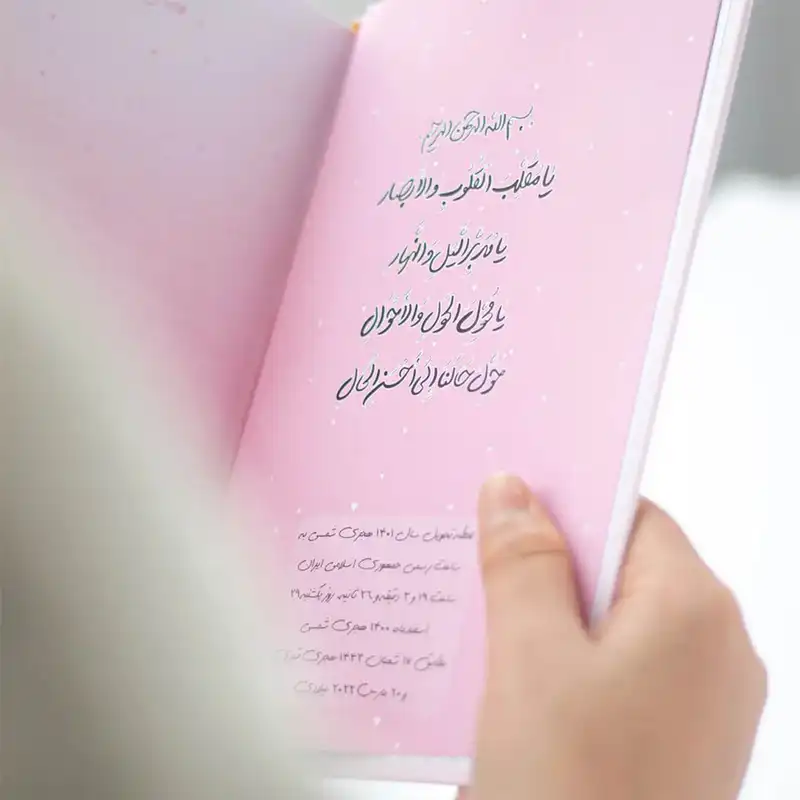 بسم الله الرحمن الرحیم
یا مقلب القلوب والابصار
یا مدبر الیل والنهار
یا محول الحول والاحوال
حول حالنا الی أحسن الحال
لحظه تحویل سال ۱۴۰۱ هجری شمسی به
ساعت رسمی جمهوری اسلامی ایران
ساعت ۱۹ و ۳ دقیقه و ۲۶ ثانیه روز یکشنبه ۲۹
اسفندماه ۱۴۰۰ هجری شمسی
مطابق ۱۷ شعبان ۱۴۴۳ هجری قمری
و ۲۰ مارس ۲۰۲۲ میلادی